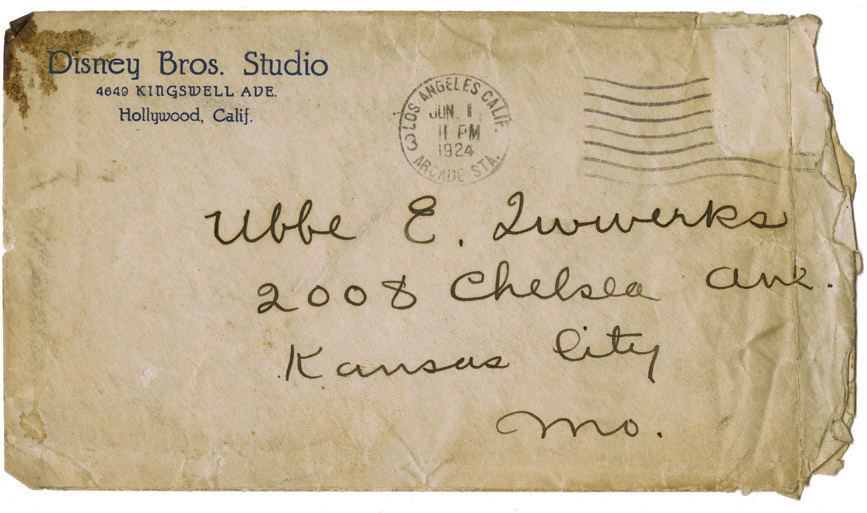 Disney Bros. Studio
4649 KINGSWELL AVE.
Hollywood, Calif.
LOS ANGELES CALIF.
JUN 1
11 PM
1924
3 ARCADE STA.
Ubbe E. Iwwerks
2008 Chelsea Ave.
Kansas City
Mo.